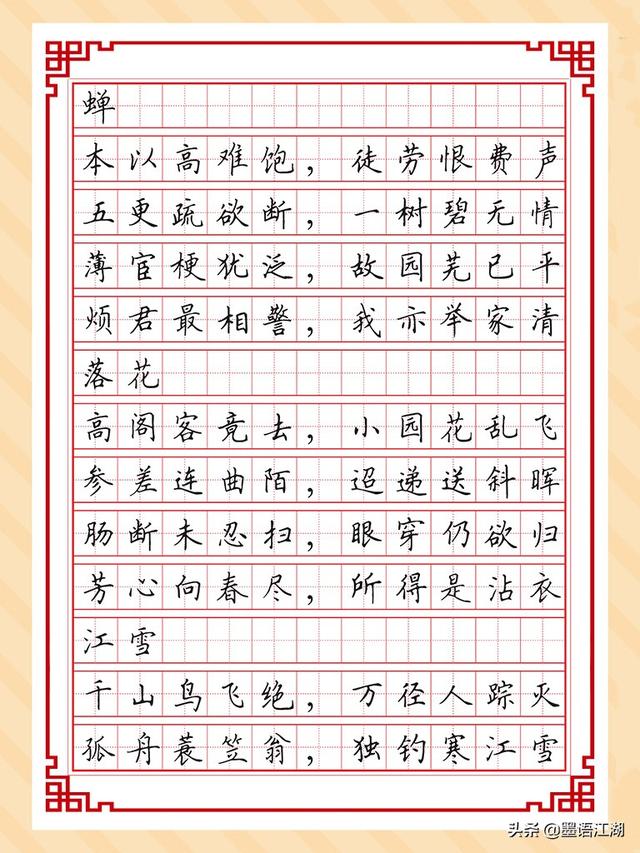 蝉
本以高难饱，徒劳恨费声
五更疏欲断，一树碧无情
薄宦梗犹泛，故园芜已平
烦君最相警，我亦举家清
落花
高阁客竟去，小园花乱飞
参差连曲陌，迢递送斜晖
肠断未忍扫，眼穿仍欲归
芳心向春尽，所得是沾衣
江雪
千山鸟飞绝，万径人踪灭
孤舟蓑笠翁，独钓寒江雪
头条 @墨语江湖